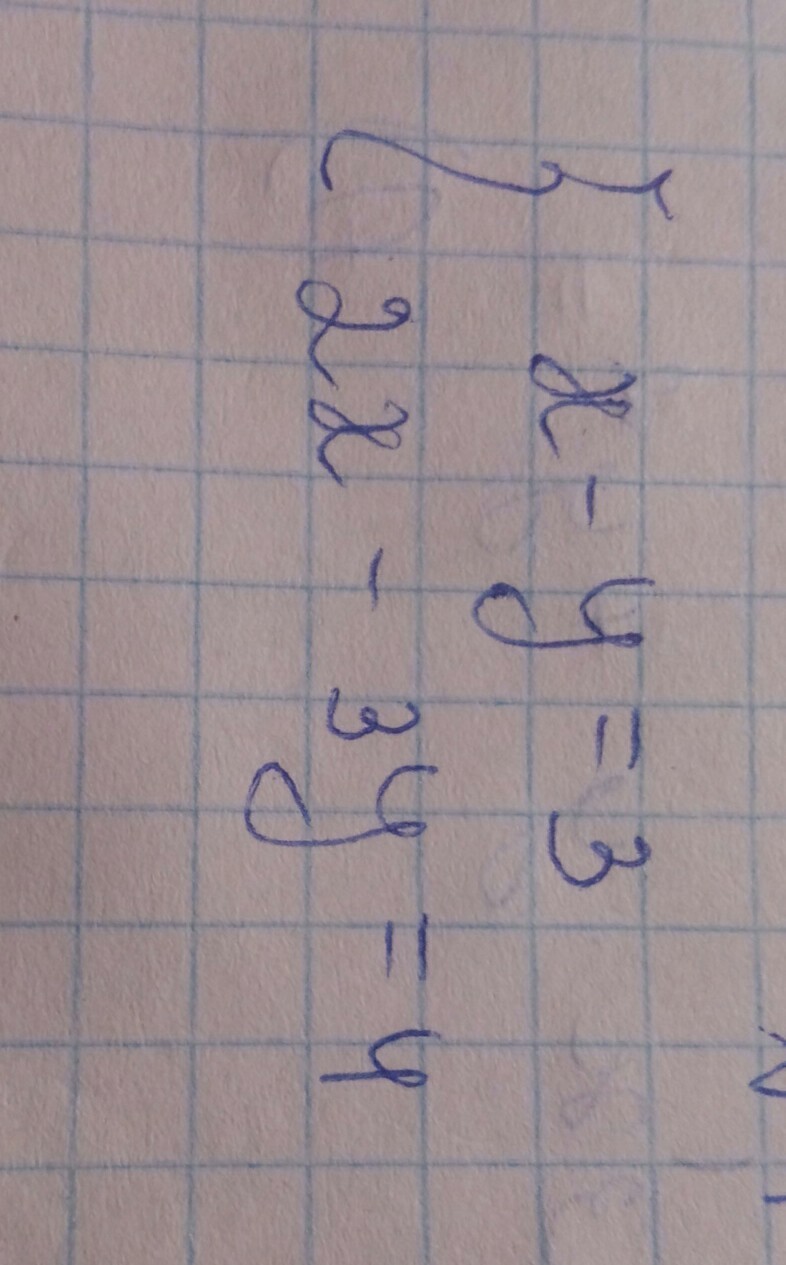 x - y = 3
2x - 3y = 4